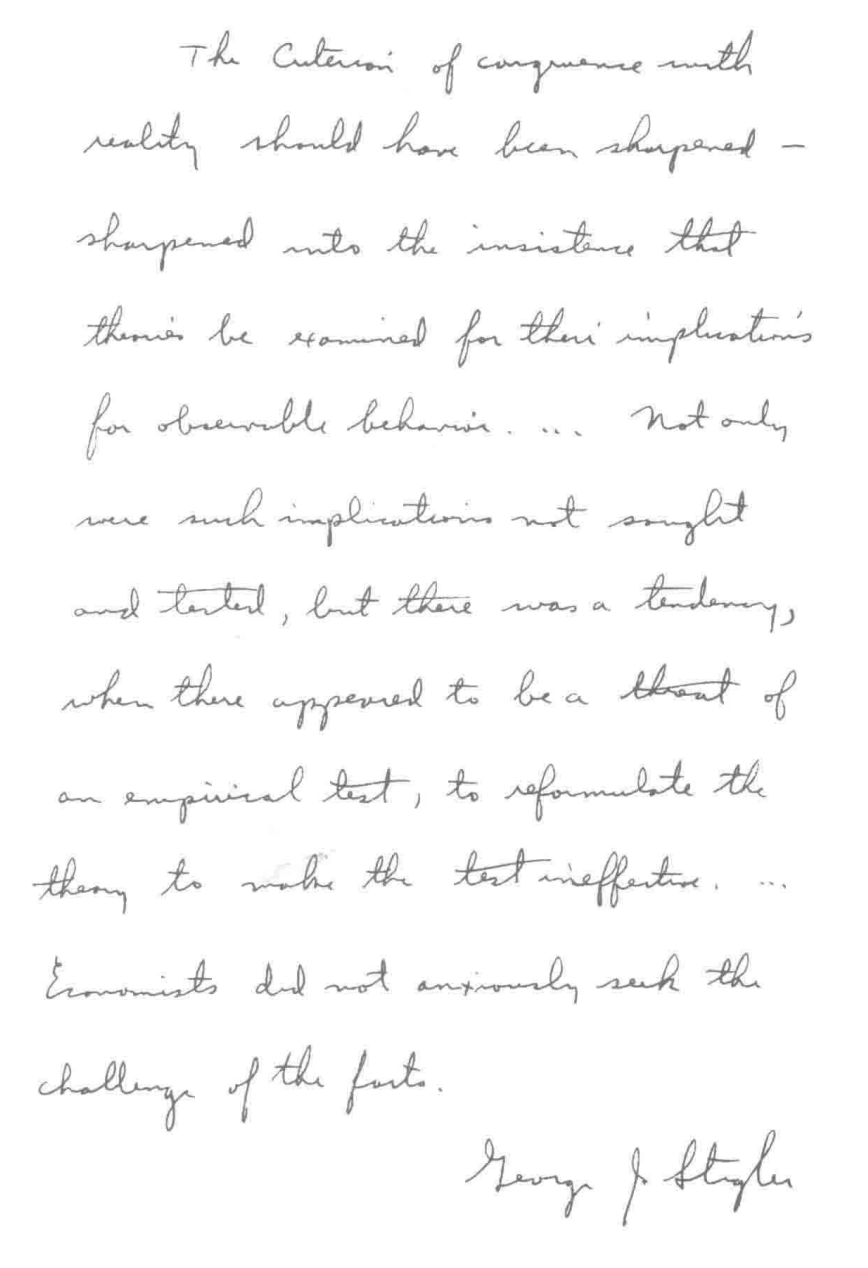 The Criterion of congruence with
reality should have been sharpened –
sharpened into the insistence that
theories be examined for their implications
for observable behavior. ... Not only
were such implications not sought
and tested, but there was a tendency,
when there appeared to be a threat of
an empirical test, to reformulate the
theory to make the test ineffective. ...
Economists did not anxiously seek the
challenge of the facts.
George J Stigler